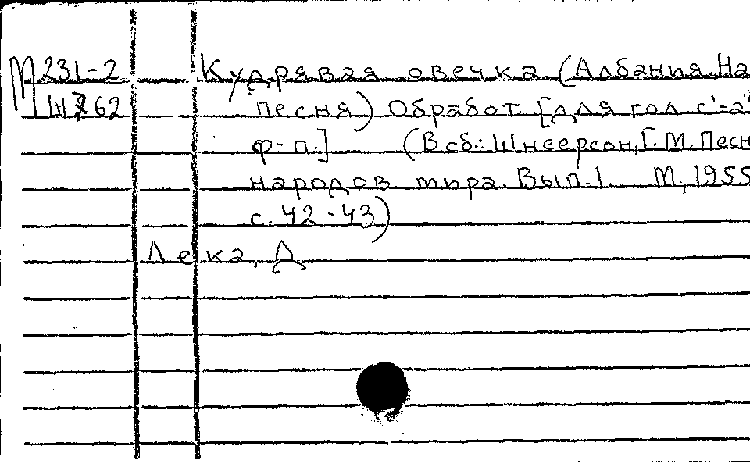 М 231-2 Кудрявая овечка (Албания. На
Ш 262 песня) Обработ [для гол c'-a'
ф-п.] (В сб.: Шнеерсон, Г. М. Песн
народов мира. Вып. 1 М, 1955
с. 42-43)
Лека, Д